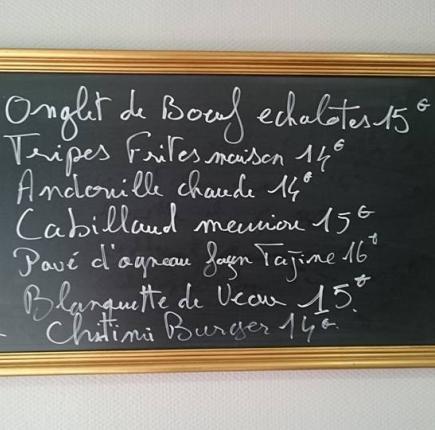 Onglet de Boeuf echalotes 15€
Tripes Frites maison 14€
Andouille chaude 14€
Cabillaud meuniere 15€
Pavé d'agneau façon Tajine 16€
Blanquette de Veau 15€
Chtimi Burger 14€